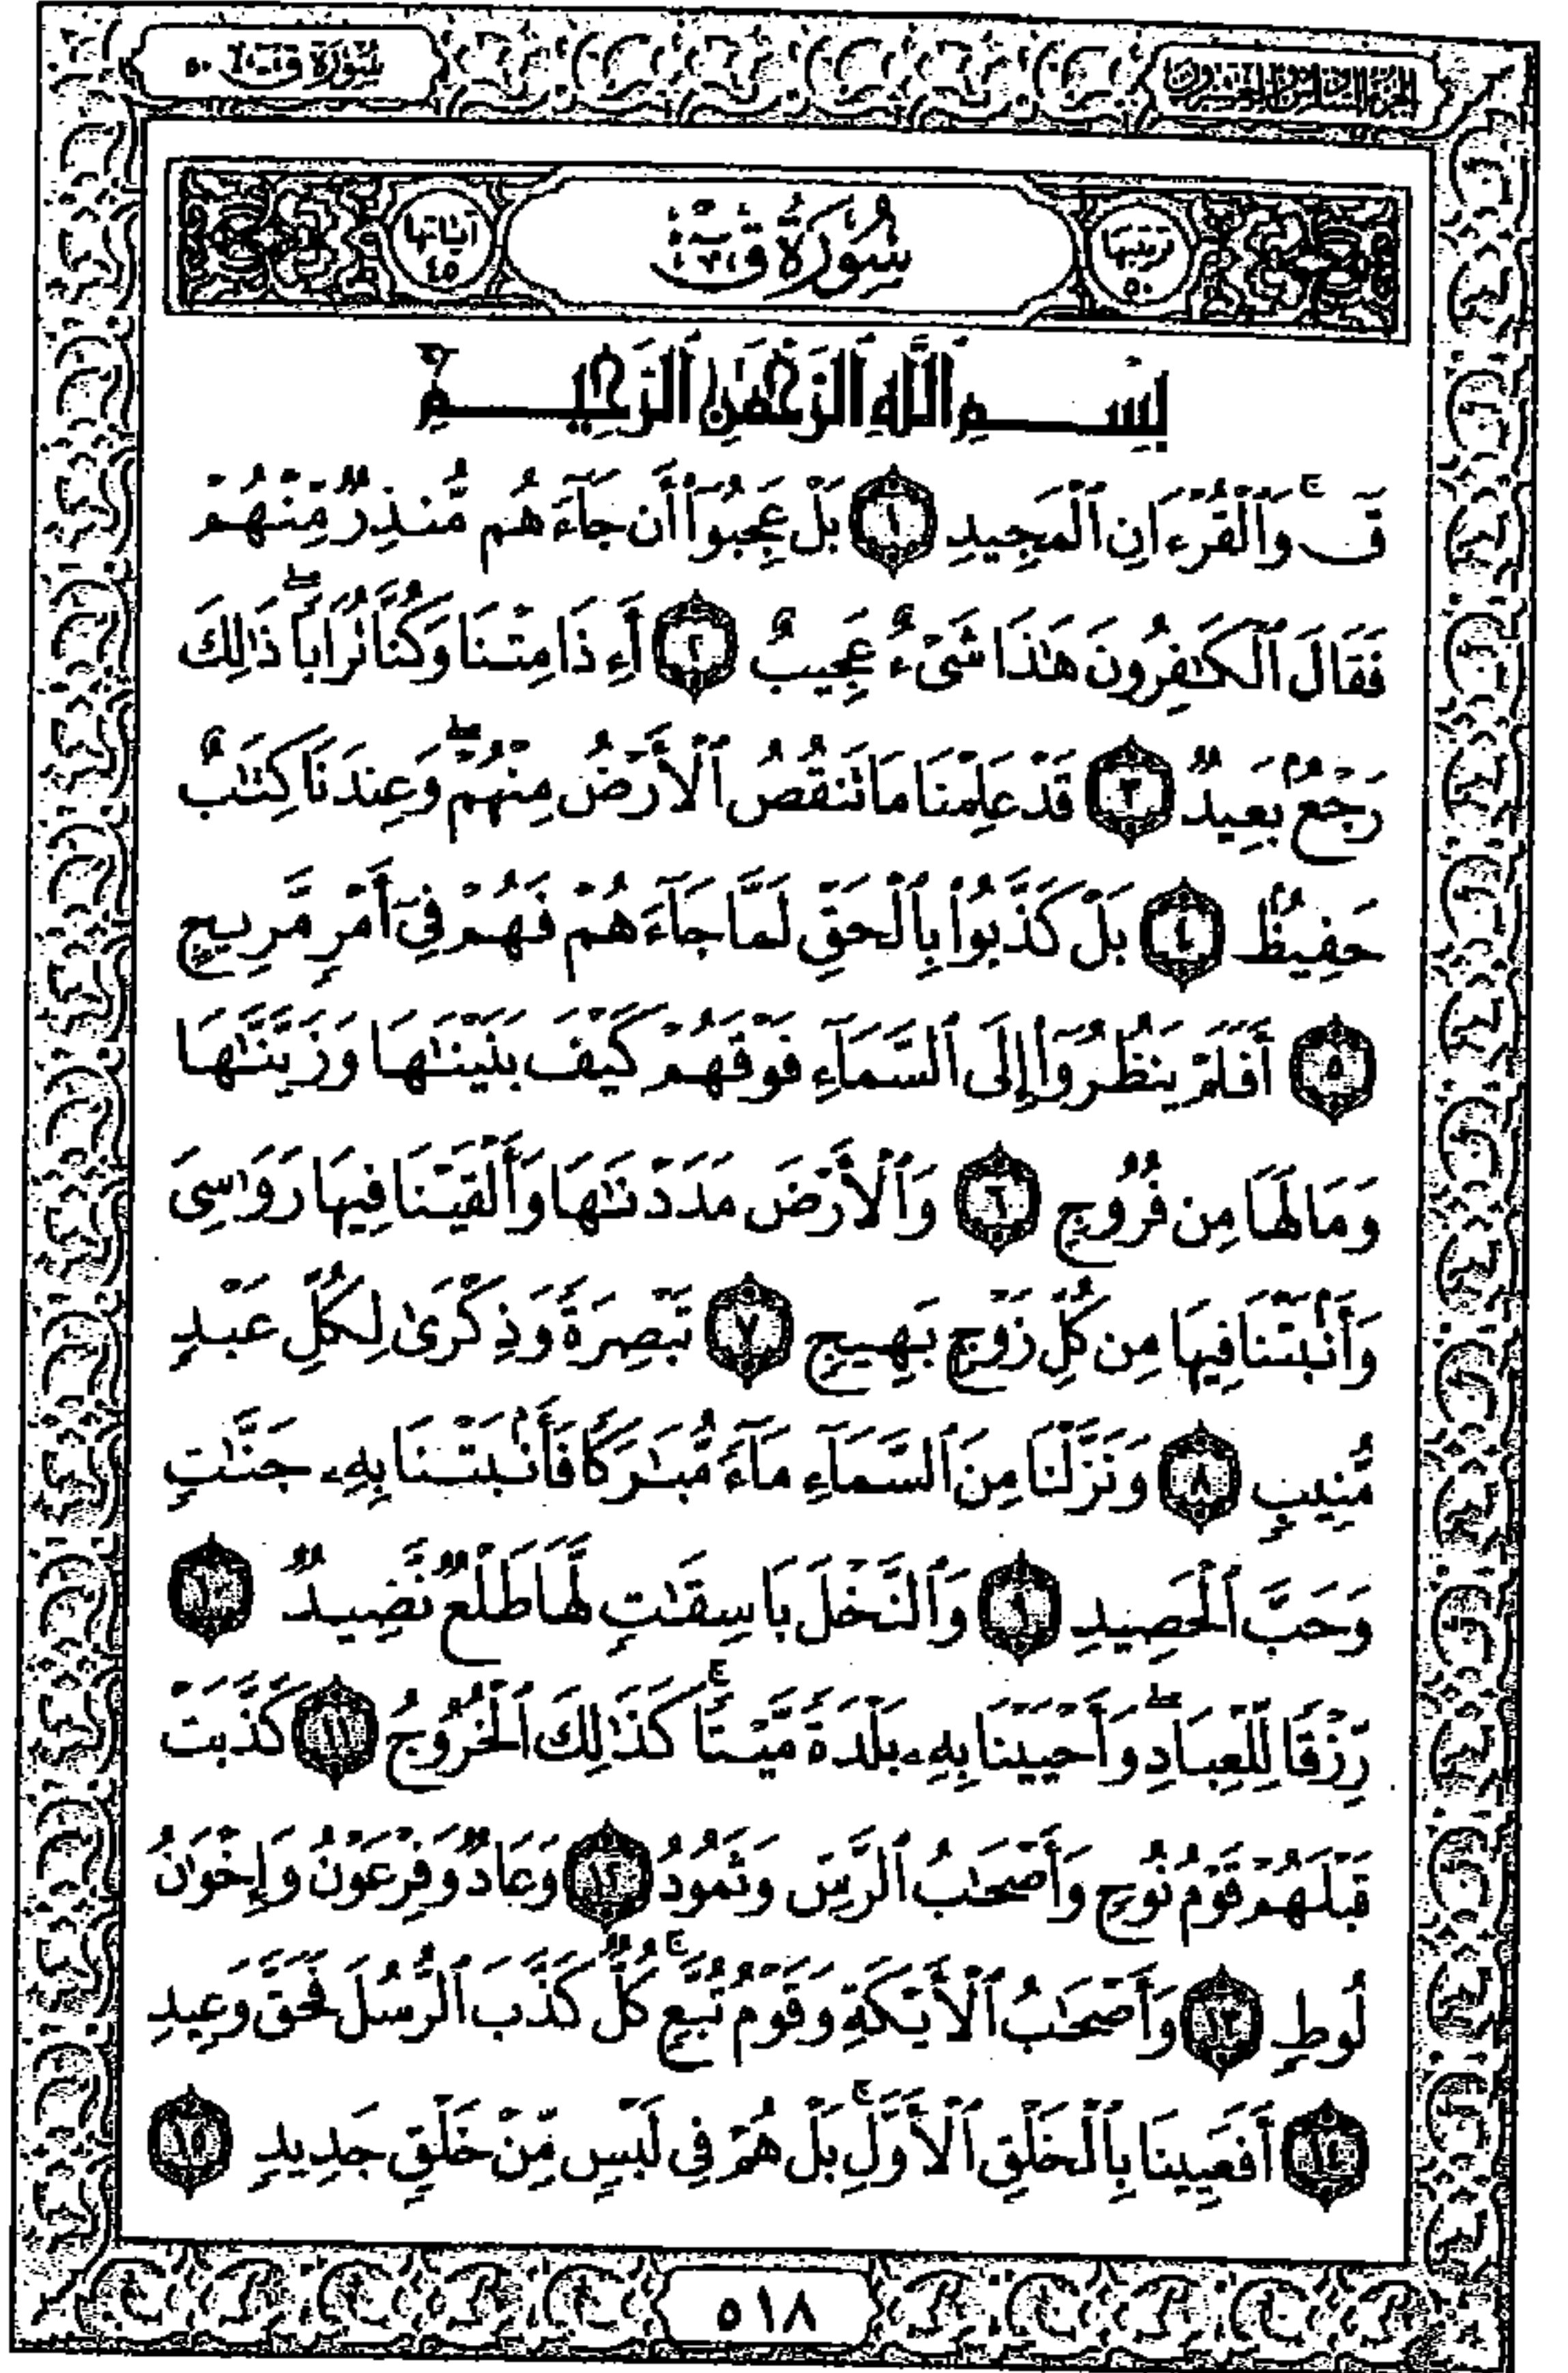 الجزء السادس والعشرون
سورة ق ٥٠
ترتيبها ٥٠
سُورَةُ ق
آياتها ٤٥
بِسْمِ ٱللَّهِ ٱلرَّحْمَٰنِ ٱلرَّحِيمِ
قٓ ۚ وَٱلْقُرْءَانِ ٱلْمَجِيدِ ١ بَلْ عَجِبُوٓا۟ أَن جَآءَهُم مُّنذِرٌ مِّنْهُمْ
فَقَالَ ٱلْكَٰفِرُونَ هَٰذَا شَىْءٌ عَجِيبٌ ٢ أَءِذَا مِتْنَا وَكُنَّا تُرَابًا ۖ ذَٰلِكَ
رَجْعٌۢ بَعِيدٌ ٣ قَدْ عَلِمْنَا مَا تَنقُصُ ٱلْأَرْضُ مِنْهُمْ ۖ وَعِندَنَا كِتَٰبٌ
حَفِيظٌۢ ٤ بَلْ كَذَّبُوا۟ بِٱلْحَقِّ لَمَّا جَآءَهُمْ فَهُمْ فِىٓ أَمْرٍ مَّرِيجٍ
٥ أَفَلَمْ يَنظُرُوٓا۟ إِلَى ٱلسَّمَآءِ فَوْقَهُمْ كَيْفَ بَنَيْنَٰهَا وَزَيَّنَّٰهَا
وَمَا لَهَا مِن فُرُوجٍ ٦ وَٱلْأَرْضَ مَدَدْنَٰهَا وَأَلْقَيْنَا فِيهَا رَوَٰسِىَ
وَأَنۢبَتْنَا فِيهَا مِن كُلِّ زَوْجٍۭ بَهِيجٍ ٧ تَبْصِرَةً وَذِكْرَىٰ لِكُلِّ عَبْدٍ
مُّنِيبٍ ٨ وَنَزَّلْنَا مِنَ ٱلسَّمَآءِ مَآءً مُّبَٰرَكًا فَأَنۢبَتْنَا بِهِۦ جَنَّٰتٍ
وَحَبَّ ٱلْحَصِيدِ ٩ وَٱلنَّخْلَ بَاسِقَٰتٍ لَّهَا طَلْعٌ نَّضِيدٌ ١٠
رِّزْقًا لِّلْعِبَادِ ۖ وَأَحْيَيْنَا بِهِۦ بَلْدَةً مَّيْتًا ۚ كَذَٰلِكَ ٱلْخُرُوجُ ١١ كَذَّبَتْ
قَبْلَهُمْ قَوْمُ نُوحٍ وَأَصْحَٰبُ ٱلرَّسِّ وَثَمُودُ ١٢ وَعَادٌ وَفِرْعَوْنُ وَإِخْوَٰنُ
لُوطٍ ١٣ وَأَصْحَٰبُ ٱلْأَيْكَةِ وَقَوْمُ تُبَّعٍ ۚ كُلٌّ كَذَّبَ ٱلرُّسُلَ فَحَقَّ وَعِيدِ
١٤ أَفَعَيِينَا بِٱلْخَلْقِ ٱلْأَوَّلِ ۚ بَلْ هُمْ فِى لَبْسٍ مِّنْ خَلْقٍ جَدِيدٍ ١٥
٥١٨